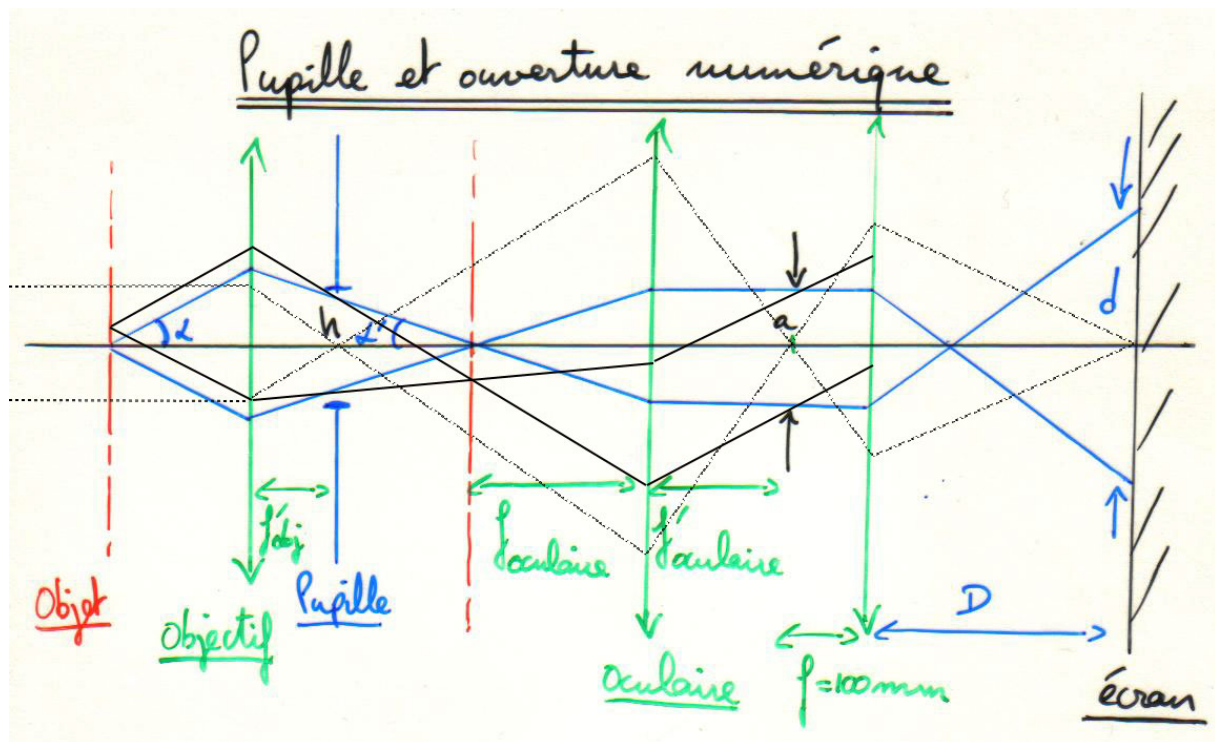 Pupille et ouverture numérique
α
h
α'
a
d
f'obj
foculaire
f'oculaire
Objet
Objectif
Pupille
D
oculaire
f=100mm
écran